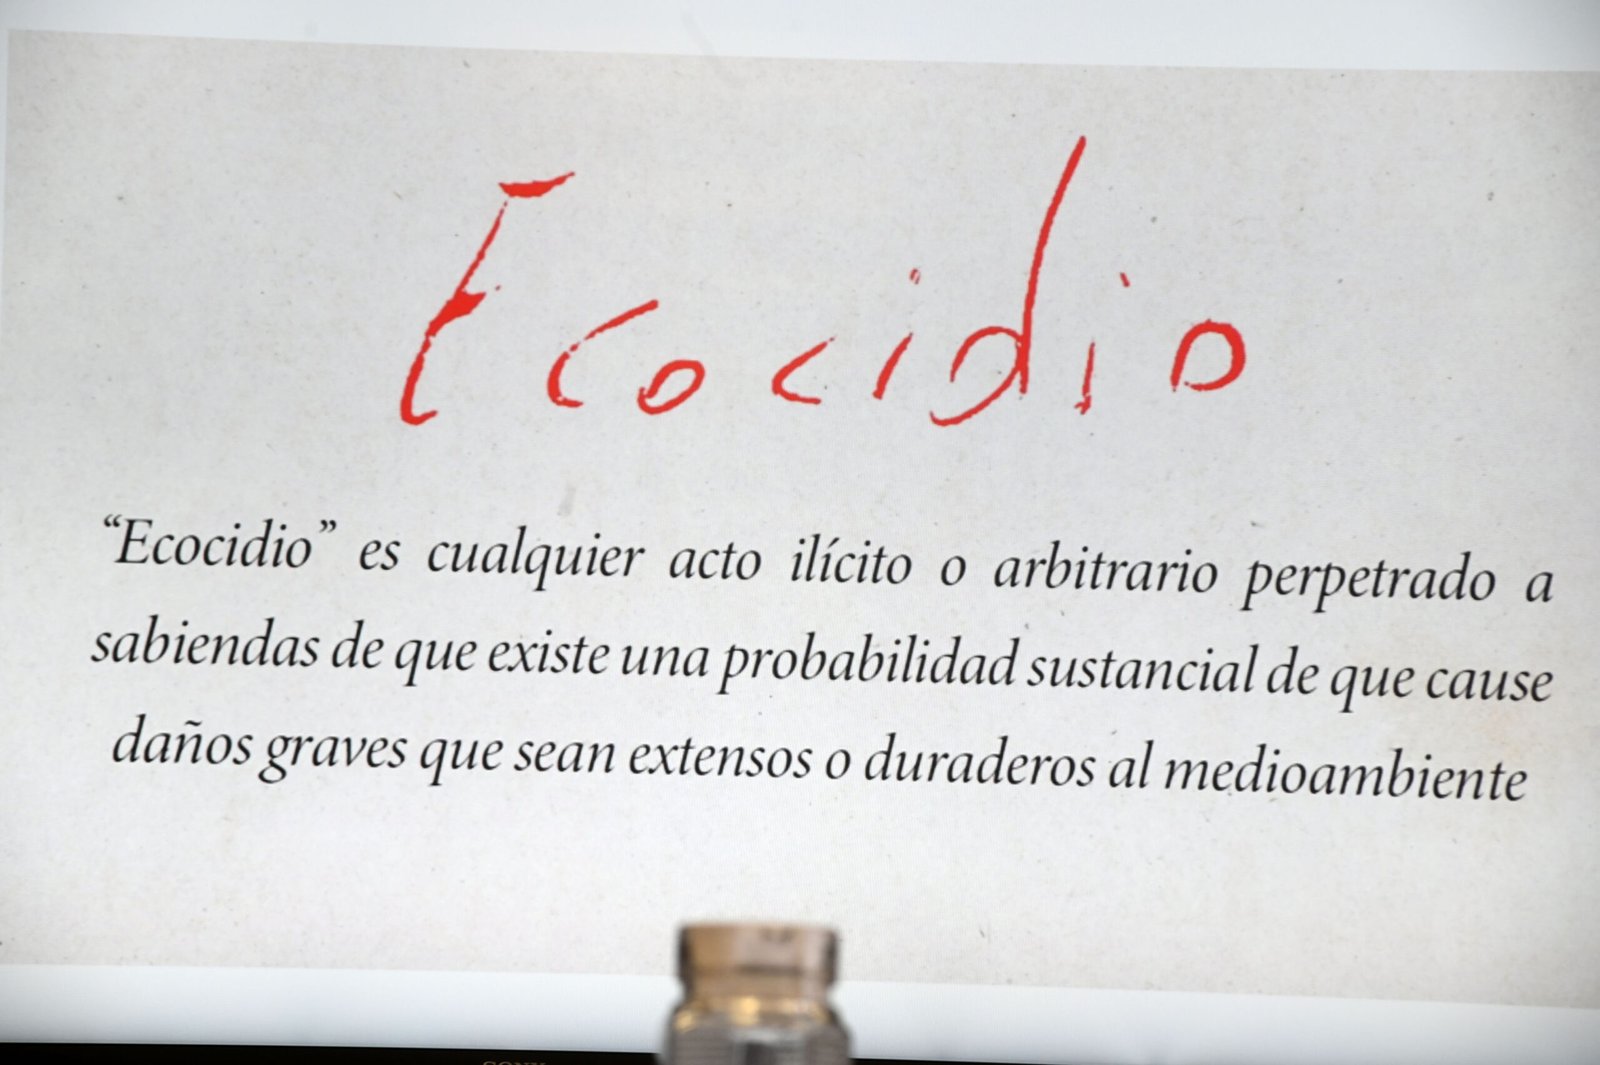 Ecocidio
“Ecocidio” es cualquier acto ilícito o arbitrario perpetrado a
sabiendas de que existe una probabilidad sustancial de que cause
daños graves que sean extensos o duraderos al medioambiente
SONY